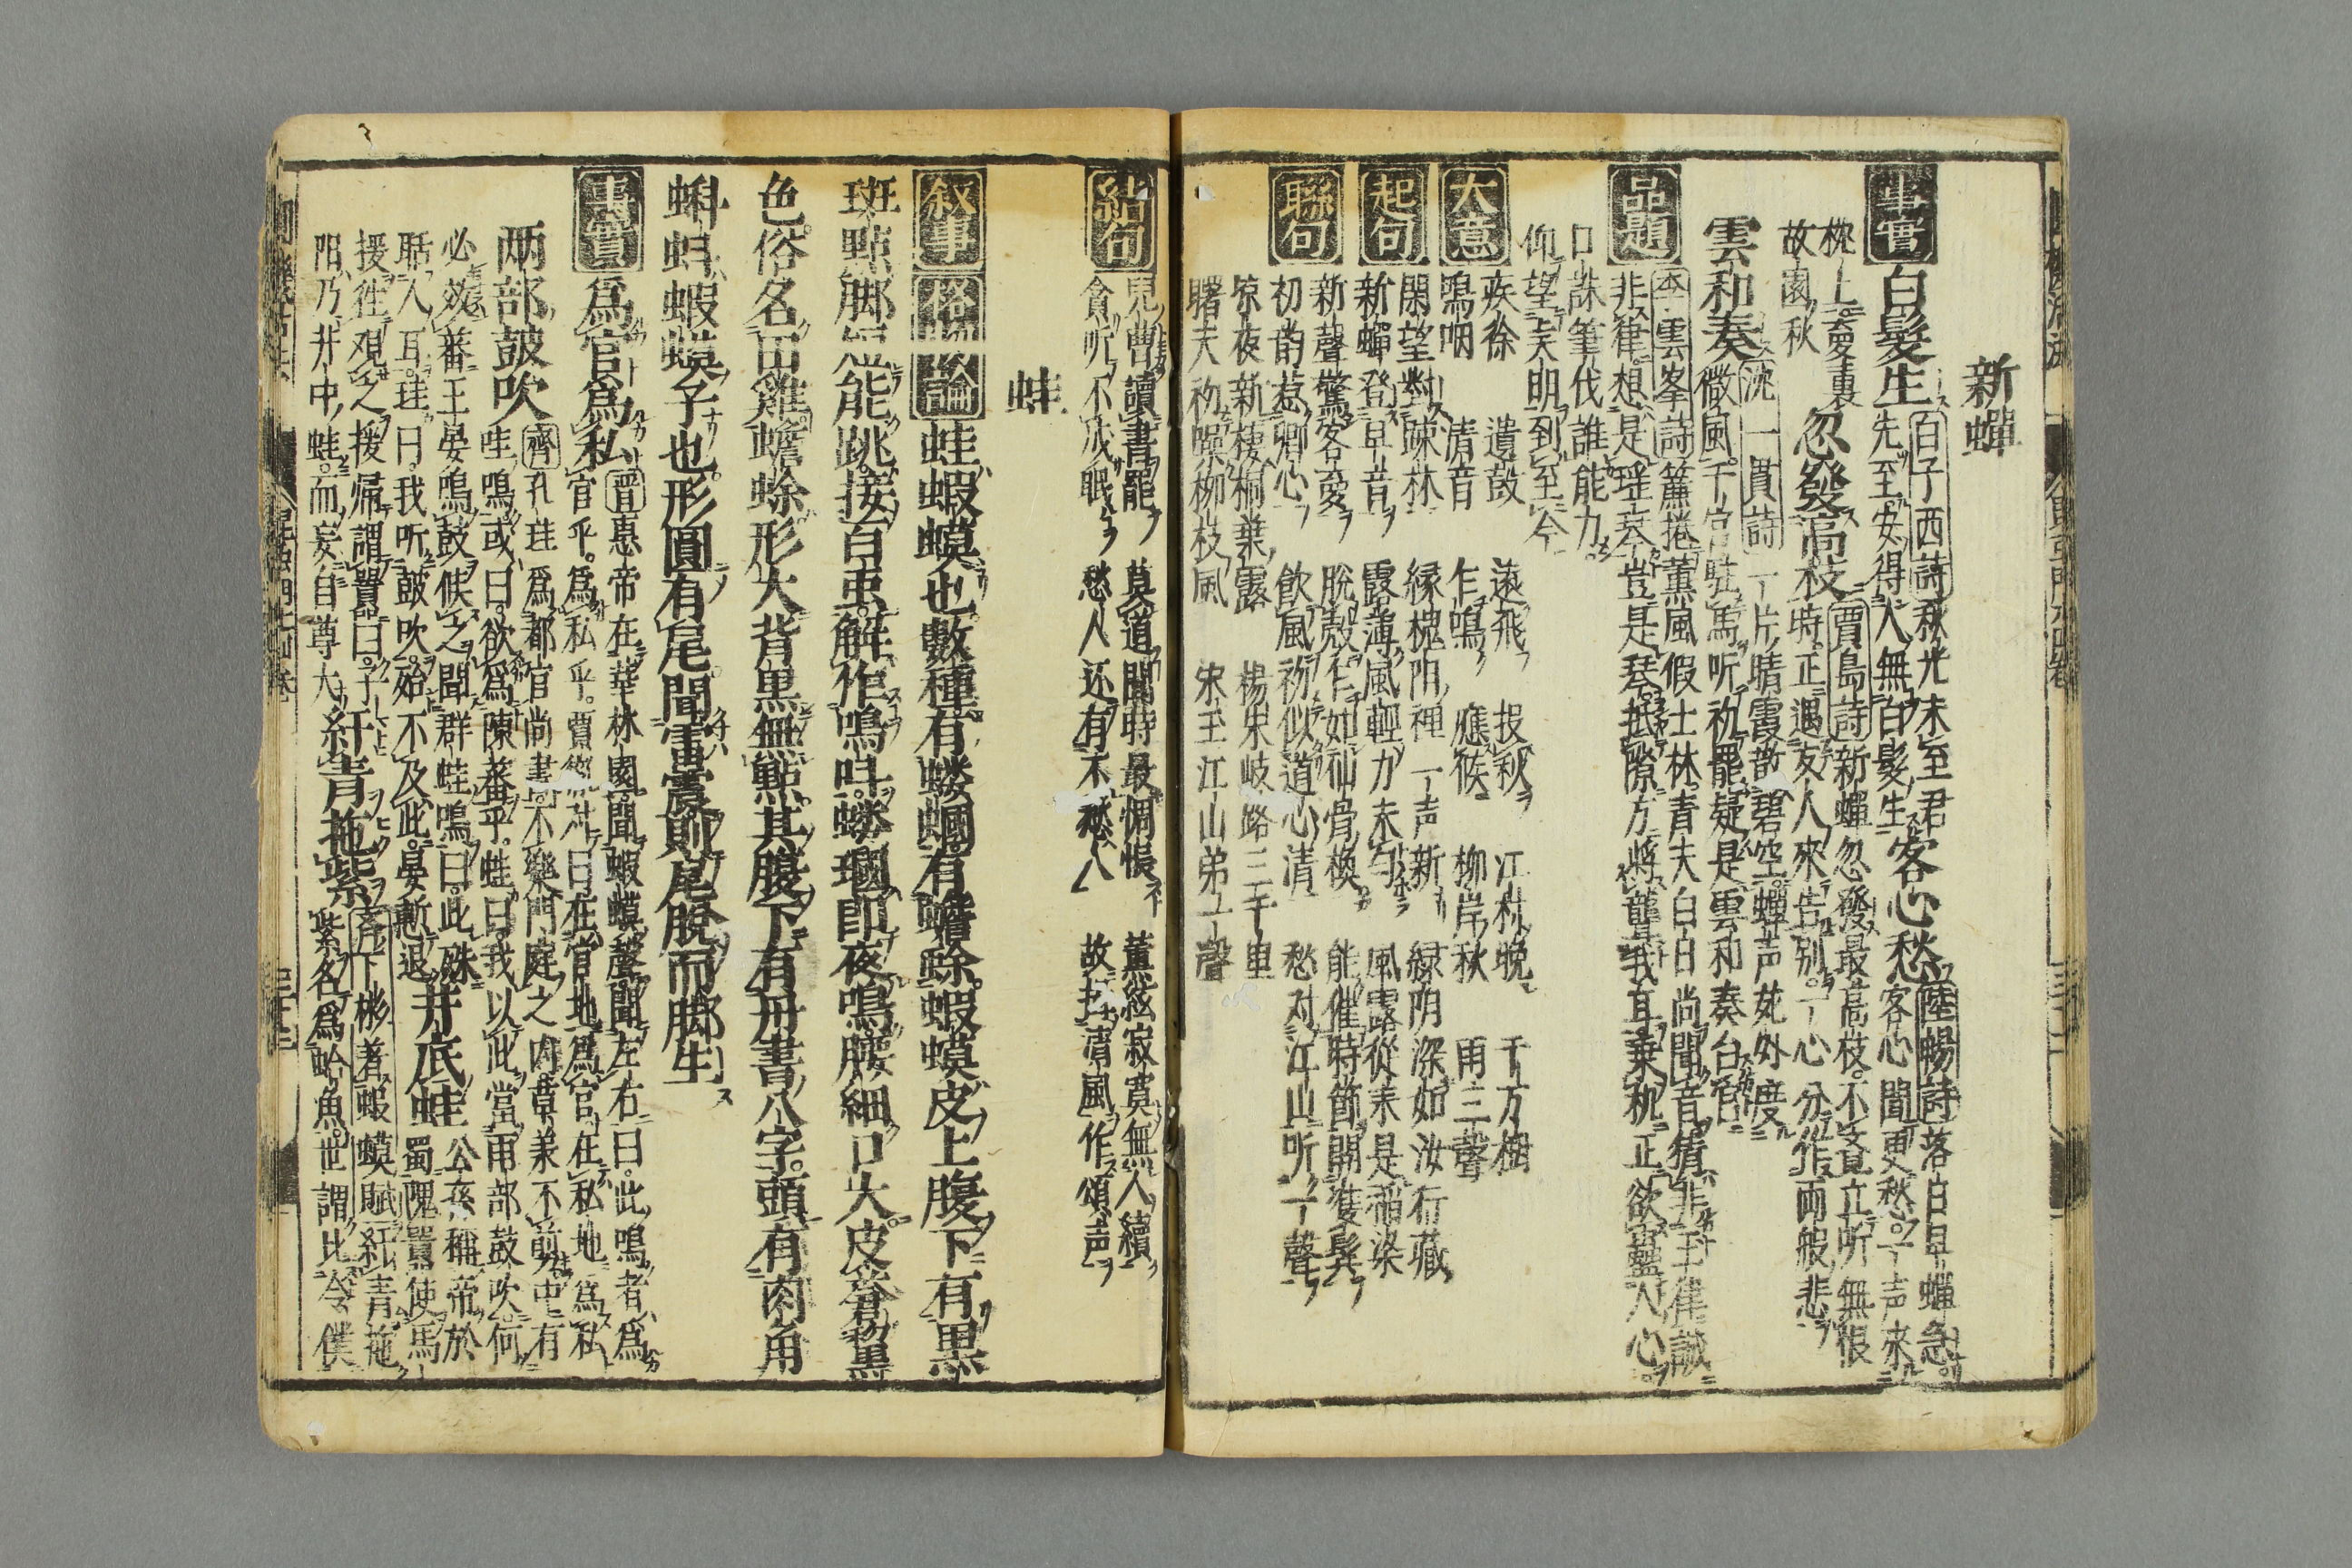 新蟬
事實 白髮生 百子西詩 秋光未至君
先至安得人無白髮生 客心愁 陸暢詩 落日早蟬急
客心聞更愁一声來
枕上夢裏
故園秋 忽發高枝 賈島詩 新蟬忽發最高枝不覓立听無限
時正遇友人來告別一心分作兩般悲
雲和奏 沈一貫詩 一片晴霞散碧空蟬声苑外度
微風千官駐馬听初罷疑是雲和奏台宫
品題 李雲峯詩 簾捲薰風假士林青夫白日尚聞音猜非玉律誠
非律想是瑶琴豈是琴抵隙方將聾我耳棄秋正欲蠱人心
口誅筆伐誰能力
仰望天明到至今
大意 疾徐 遺鼓 遠飛 投秋 江村晚 千万樹
鳴咽 清音 乍鳴 應候 柳岸秋 两三聲
閑望對踈林 緣槐阳裡一声新 緑阴深如汝行藏
起句 新蟬登早音 露薄風輕力未勻 風露從来是稲梁
新聲驚客憂 脫殼乍如仙骨換 能催時節開隻鬂
聯句 初韵惹卿心 飲風初似道心清 愁対江山听一聲
凉夜新棲桐葉露 楊朱岐路三千里
曙天初噪柳枝風 宋玉江山弟一聲
結句 兒曹讀書罷 莫道閑時最惆悵 薫絃寂寞無人續
貪听不成眠 愁人还有不愁人 故抱清風作頌声
蛙
叙事 論 蛙蝦蟆也數種有螻蟈有蟾蜍蝦蟆皮上腹下有黒
斑點脚 能跳接百虫解作鳴呌螻蟈即夜鳴腰細口大皮蒼黎黒
色俗名田雞蟾蜍形大背黒無點其腹下有丹書八字頭有肉角
蝌蚪蝦蟆子也形圓有尾聞雷震則尾脫而脚生
事實 爲官爲私 晋惠帝在華林園聞蝦蟆聲聞左右曰此鳴者爲
官乎爲私乎賈 対曰在官地爲官在私地爲私
兩部鼓吹 齊孔珪爲都官尚書不樂門庭之内草莱不剪中有
哇鳴或曰欲爲陳蕃乎蛙曰我以此當两部鼓吹何
必效蕃王晏鳴鼓候之聞群蛙鳴曰此殊
聒人耳珪曰我听皷吹始不及此晏慙退 井底蛙 公孫稱帝於
蜀隗囂使馬
援往覌之援帰謂囂曰子
阳乃井中蛙而妄自尊大 紆青拖紫 斉卞彬著蝦蟆賦紆青拖
紫名爲蛤魚世謂比令僕